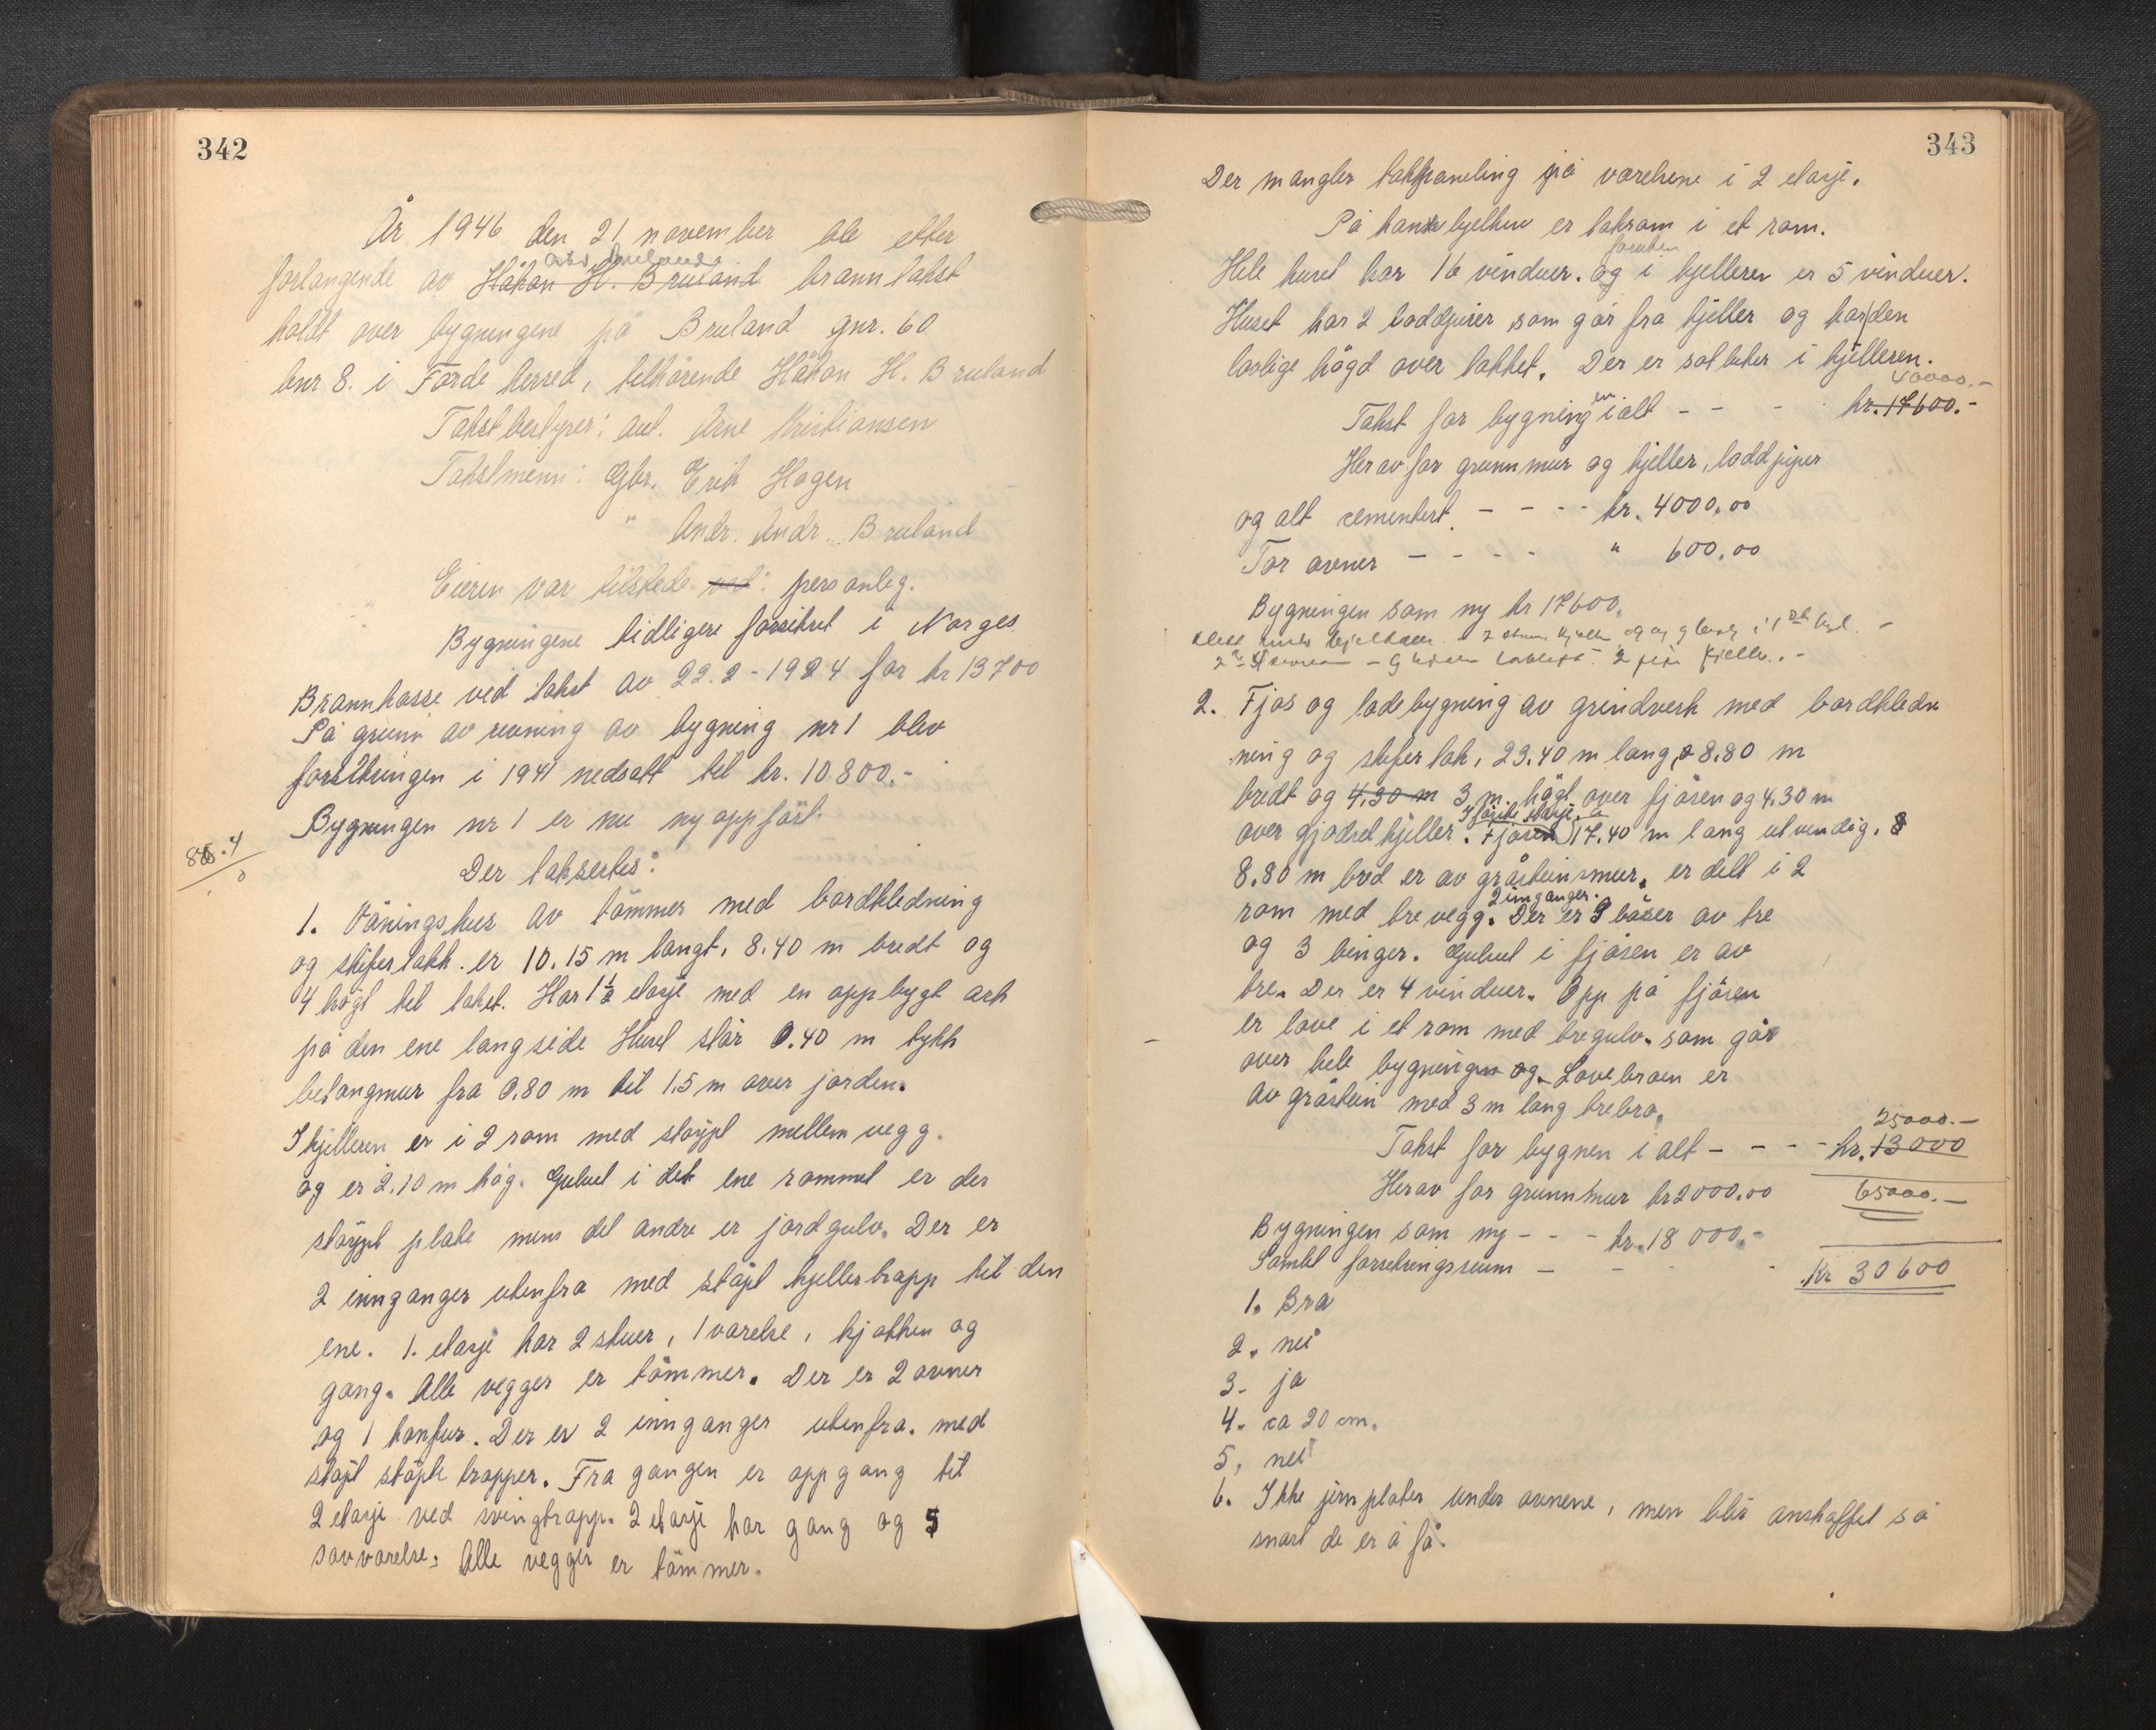 342
År 1946 den 21 november ble etter
Bruland
forlangende av Håkon H. Bruland branntakst
holdt over bygningene på Bruland gnr. 60
bnr 8. i Førde herred, tilhørende Håkon H. Bruland
Takstbestyrer: aut. Arne Kristiansen
Takstmenn: Gbr. Erik Hagen
" Andr. Andr. Bruland
Eieren var tilstede ved: personleg.
Bygningene tidligere forsikret i Norges
Brannkasse ved takst av 22.2-1924 for kr 13700
På grunn av revning av bygning nr 1 blev
forsikringen i 1941 nedsatt til kr. 10800.-
Bygningen nr 1 er nu ny oppført.
Der takseertes:
1. Våningshus av tømmer med bordkledning
og skifertakk. er 10.15 m langt, 8.40 m bredt og
4 høgt til taket. Har 1½ etasje med en oppbygt ark
på den ene langside Huset står 0.40 m tykk
betongmur fra 0.80 m til 1.5 m over jorden.
I kjelleren er i 2 rom med støypt mellemvegg.
og er 2.10 m høg. Gulvet i det ene rommet er der
støypt plate mens det andre er jordgulv. Der er
2 innganger utenfra med støpt kjellertrapp til den
ene. 1. etasje har 2 stuer, 1 værelse, kjøkken og
gang. Alle vegger er tømmer. Der er 2 ovner
og 1 komfur. Der er 2 innganger utenfra. med
støpt støpte trapper. Fra gangen er oppgang til
2 etasje ved svingtrapp. 2 etasje har gang og 5
sovværelse. Alle vegger er tømmer.
343
Der mangler takpaneling på værelsene i 2 etasje.
På hanebjelken er takrom i et rom.
foruten
Hele huset har 16 vinduer. og i kjelleren er 5 vinduer.
Huset har 2 loddpiper som går fra kjeller og har den
lovlige høgd over takket. Der er sotluker i kjelleren.
40000.-
Takst for bygningen ialt - - - kr. 17600.-
Herav for grunnmur og kjeller, loddpiper
og alt cementert. - - - - kr. 4000.00
For ovner - - - - " 600.00
Bygningen som ny kr 17600.
2. Fjøs og ladebygning av grindverk med bordkled
ning og skifertak, 23.40 m lang, 8.80 m
bredt og 4.30 m 3 m. høgt over fjøsen og 4.30 m
I første etasje. er
over gjødselkjeller. Fjøsen 17.40 m lang utvendig. 8
8.80 m bred er av gråsteinsmur. er delt i 2
2 innganger.
rom med trevegg. Der er 9 båser av tre
og 3 binger. Gulvet i fjøsen er av
tre. Der er 4 vinduer. Opp på fjøsen
er løve i et rom med tregulv. som går
over hele bygningen og. Løvebroen er
av gråstein med 3 m lang trebro.
25000.-
Takst for bygnen i alt - - - - kr. 13000
Herav for grunnmur kr 2000.00
65000.-
Bygningen som ny - - - kr. 18 000.-
Samlet forsikringssum - - - Kr 30600
1. Bra
2. nei
3. ja
4. ca 20 cm.
5. nei
6. Ikke jernplater under ovnene, men blir anskaffet så
snart de er å få.